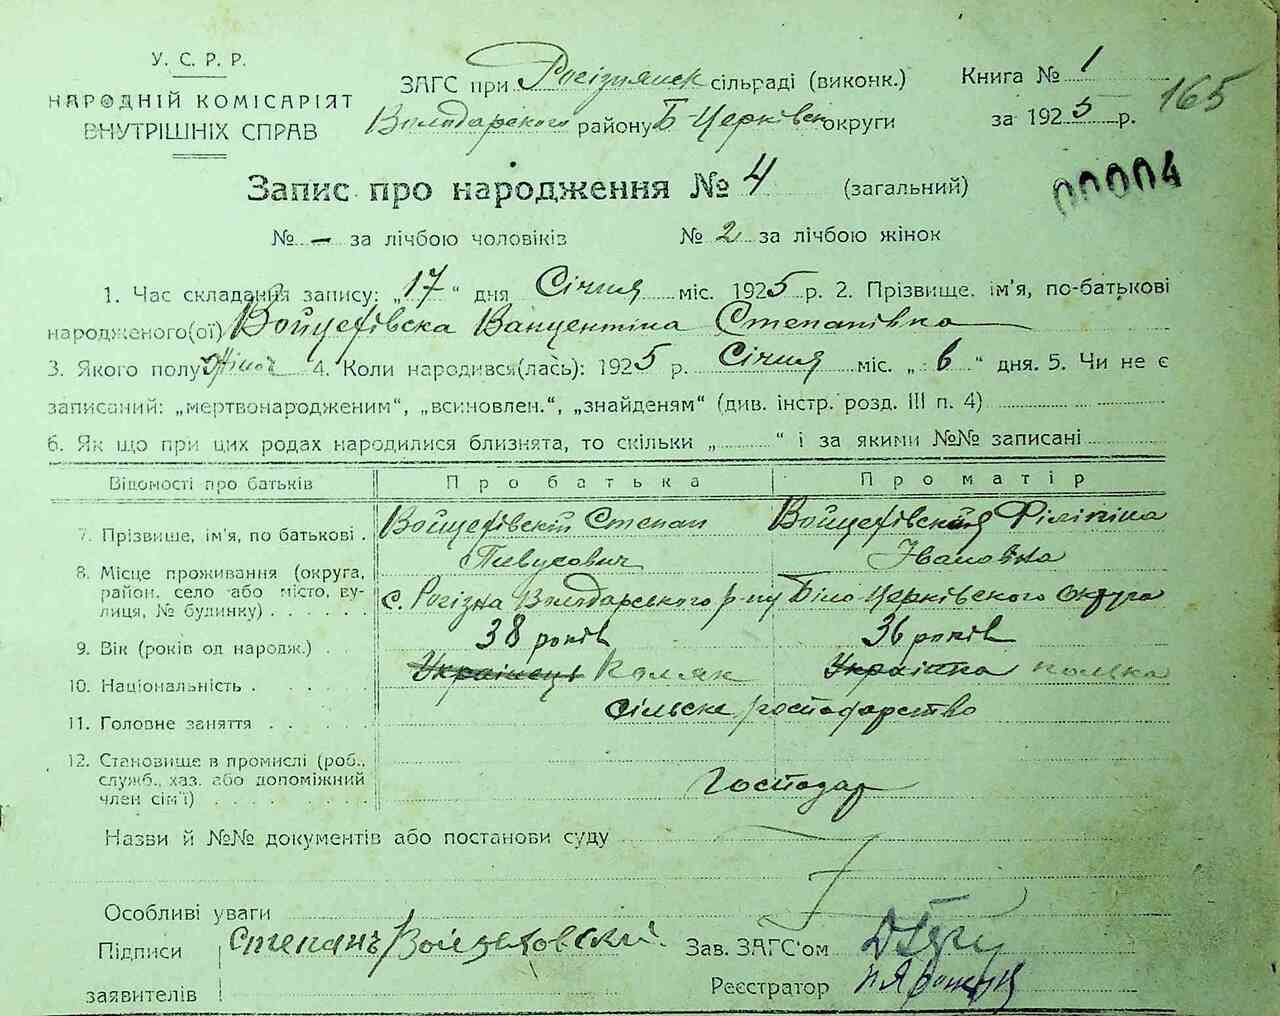 У. С. Р. Р.
НАРОДНІЙ КОМІСАРІЯТ
ВНУТРІШНІХ СПРАВ
ЗАГС при Рогізнянск сільраді (виконк.)
Володарского району Б-Церківск округи
Книга № 1
за 1925 р.
165
Запис про народження № 4 (загальний)
00004
№ - за лічбою чоловіків № 2 за лічбою жінок
1. Час складання запису: „17" дня Січня міс. 1925 р. 2. Прізвище, ім'я, по-батькові
народженого(ої) ВойцехівскаВанцентіна Степанівна
3. Якого полу жіноч 4. Коли народився(лась): 1925 р. Січня міс. „6" дня. 5. Чи не є
записаний: „мертвонародженим", „всиновлен.", „знайденям" (див. інстр. розд. III п. 4)
6. Як що при цих родах народилися близнята, то скільки „ " і за якими №№ записані
Відомості про батьків Про батька Про матір
7. Прізвище, ім'я, по батькові . Войцехівскі Степан Войцехівская Філіпіна
Івановна
8. Місце проживання (округа,
район, село або місто, вулиця, № будинку) . . . . с. Рогізна Володарського р-ну Біло-Церківского Округа
9. Вік (років од народж.) . . 38 років 36 років
10. Національність . . . . Українець Поляк Українка полька
11. Головне заняття . . . . . сільске господарство
12. Становище в промислі (роб.,
служб., хаз. або допоміжний
член сім'ї) . . . . . . . . Господар
Назви й №№ документів або постанови суду
Особливі уваги
Підписи Степанъ Войцеховский.
заявителів
Зав. ЗАГС'ом
Реєстратор